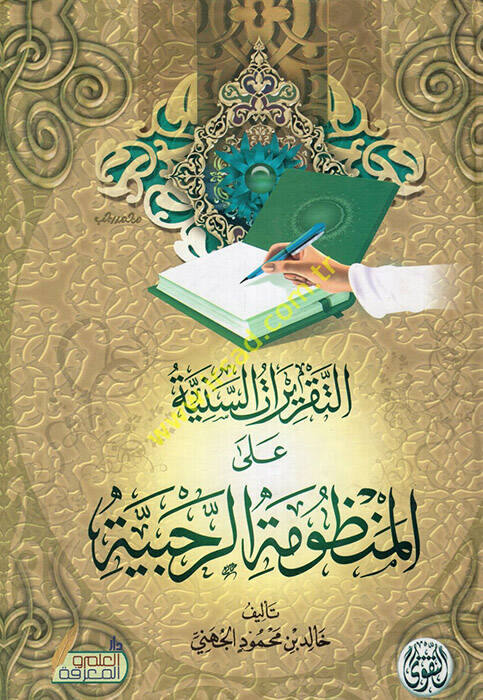 التَّقْرِيرَاتُ السَّنِيَّةُ
عَلَى
المَنْظُومَةِ الرَّحَبِيَّةِ
تَأْلِيفُ
خَالِدِ بْنِ مَحْمُودٍ الجُهَنِيِّ
دار
العلوم والمعرفة
التقوى